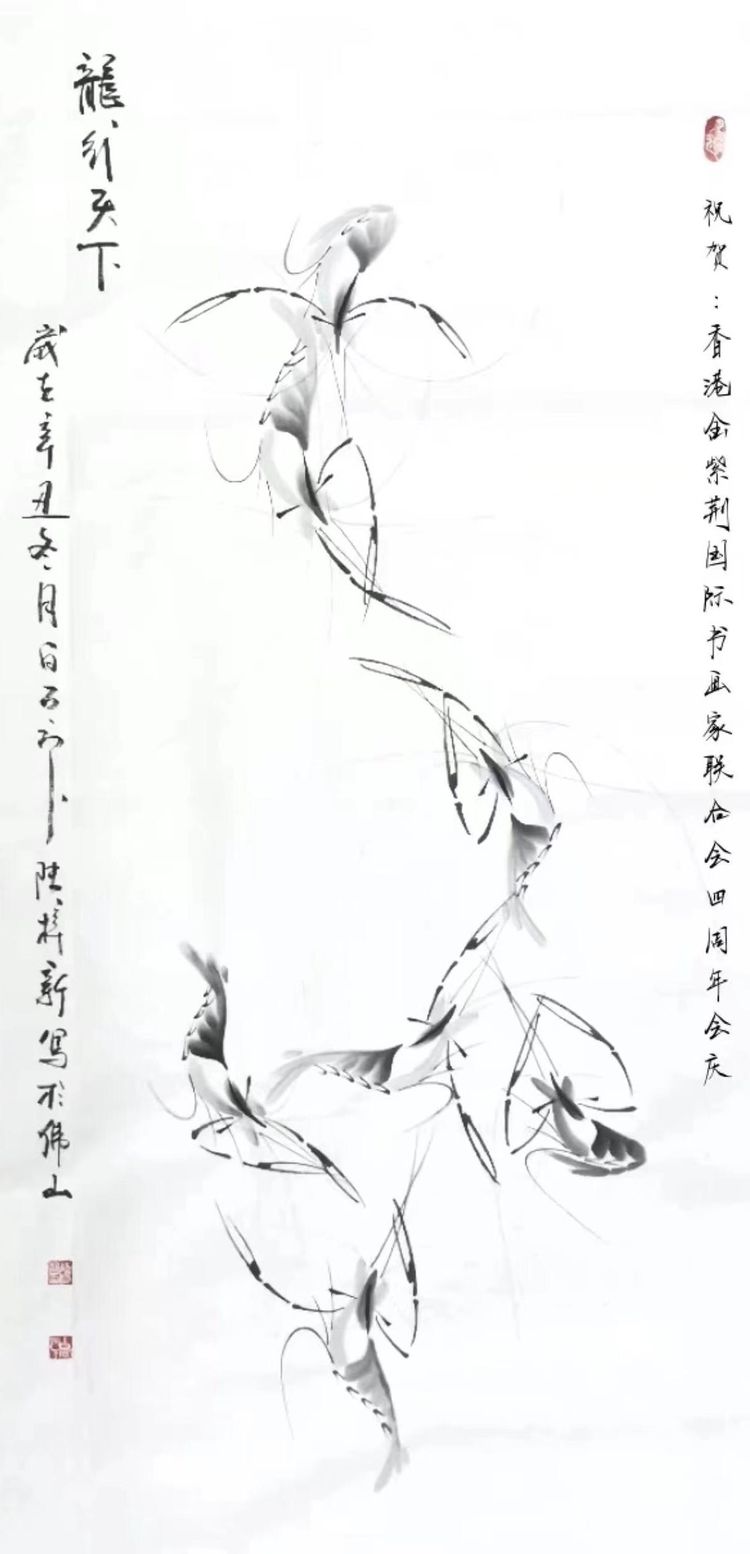 祝贺：香港金紫荆国际书画家联合会四周年会庆
龍行天下
歲在辛丑冬月 陆梓新写於佛山